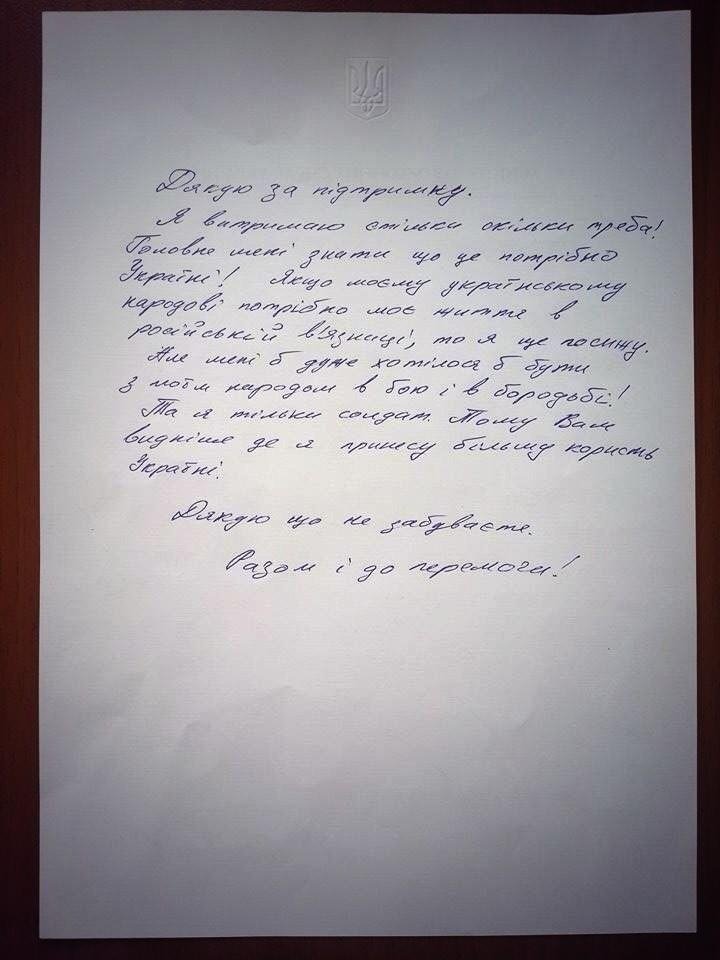 Дякую за підтримку.
Я витримаю стільки скільки треба!
Головне мені знати що це потрібно
Україні! Якщо моєму українському
народові потрібно моє життя в
російській в'язниці, то я ще посижу.
Але мені б дуже хотілося б бути
з моїм народом в бою і в боротьбі!
Та я тільки солдат. Тому Вам
видніше де я принесу більшу користь
Україні.
Дякую що не забуваєте.
Разом і до перемоги!